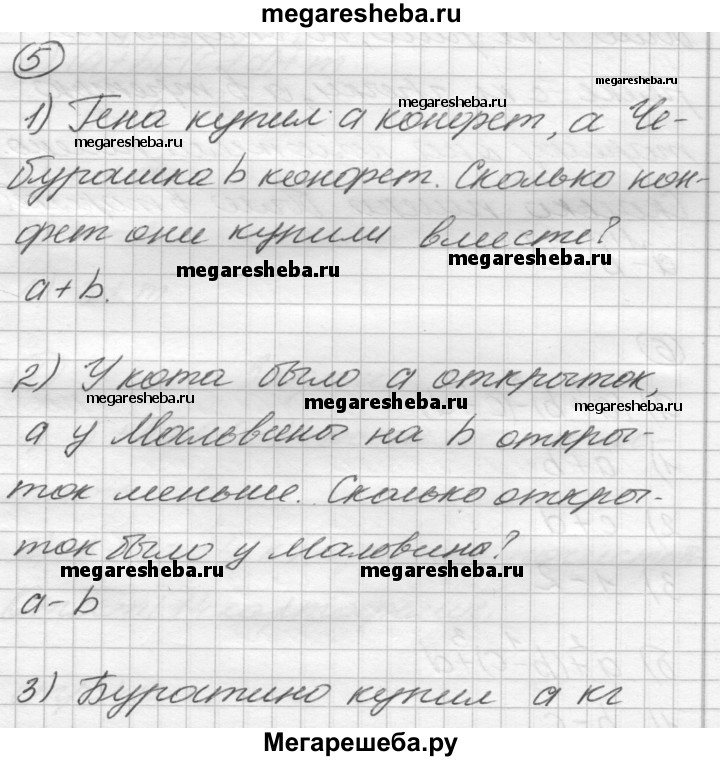 megaresheba.ru
5
megaresheba.ru
1) Гена купил a конфет, а Че-
megaresheba.ru
megaresheba.ru
бурашка b конфет. Сколько кон-
фет они купили вместе?
megaresheba.ru
megaresheba.ru
a+b.
2) У кота было a открыток,
megaresheba.ru
megaresheba.ru
megaresheba.ru
а у Мальвины на b откры-
ток меньше. Сколько откры-
ток было у Мальвины?
megaresheba.ru
megaresheba.ru
a-b
3) Буратино купил a кг
megaresheba.ru
Мегарешеба.ру